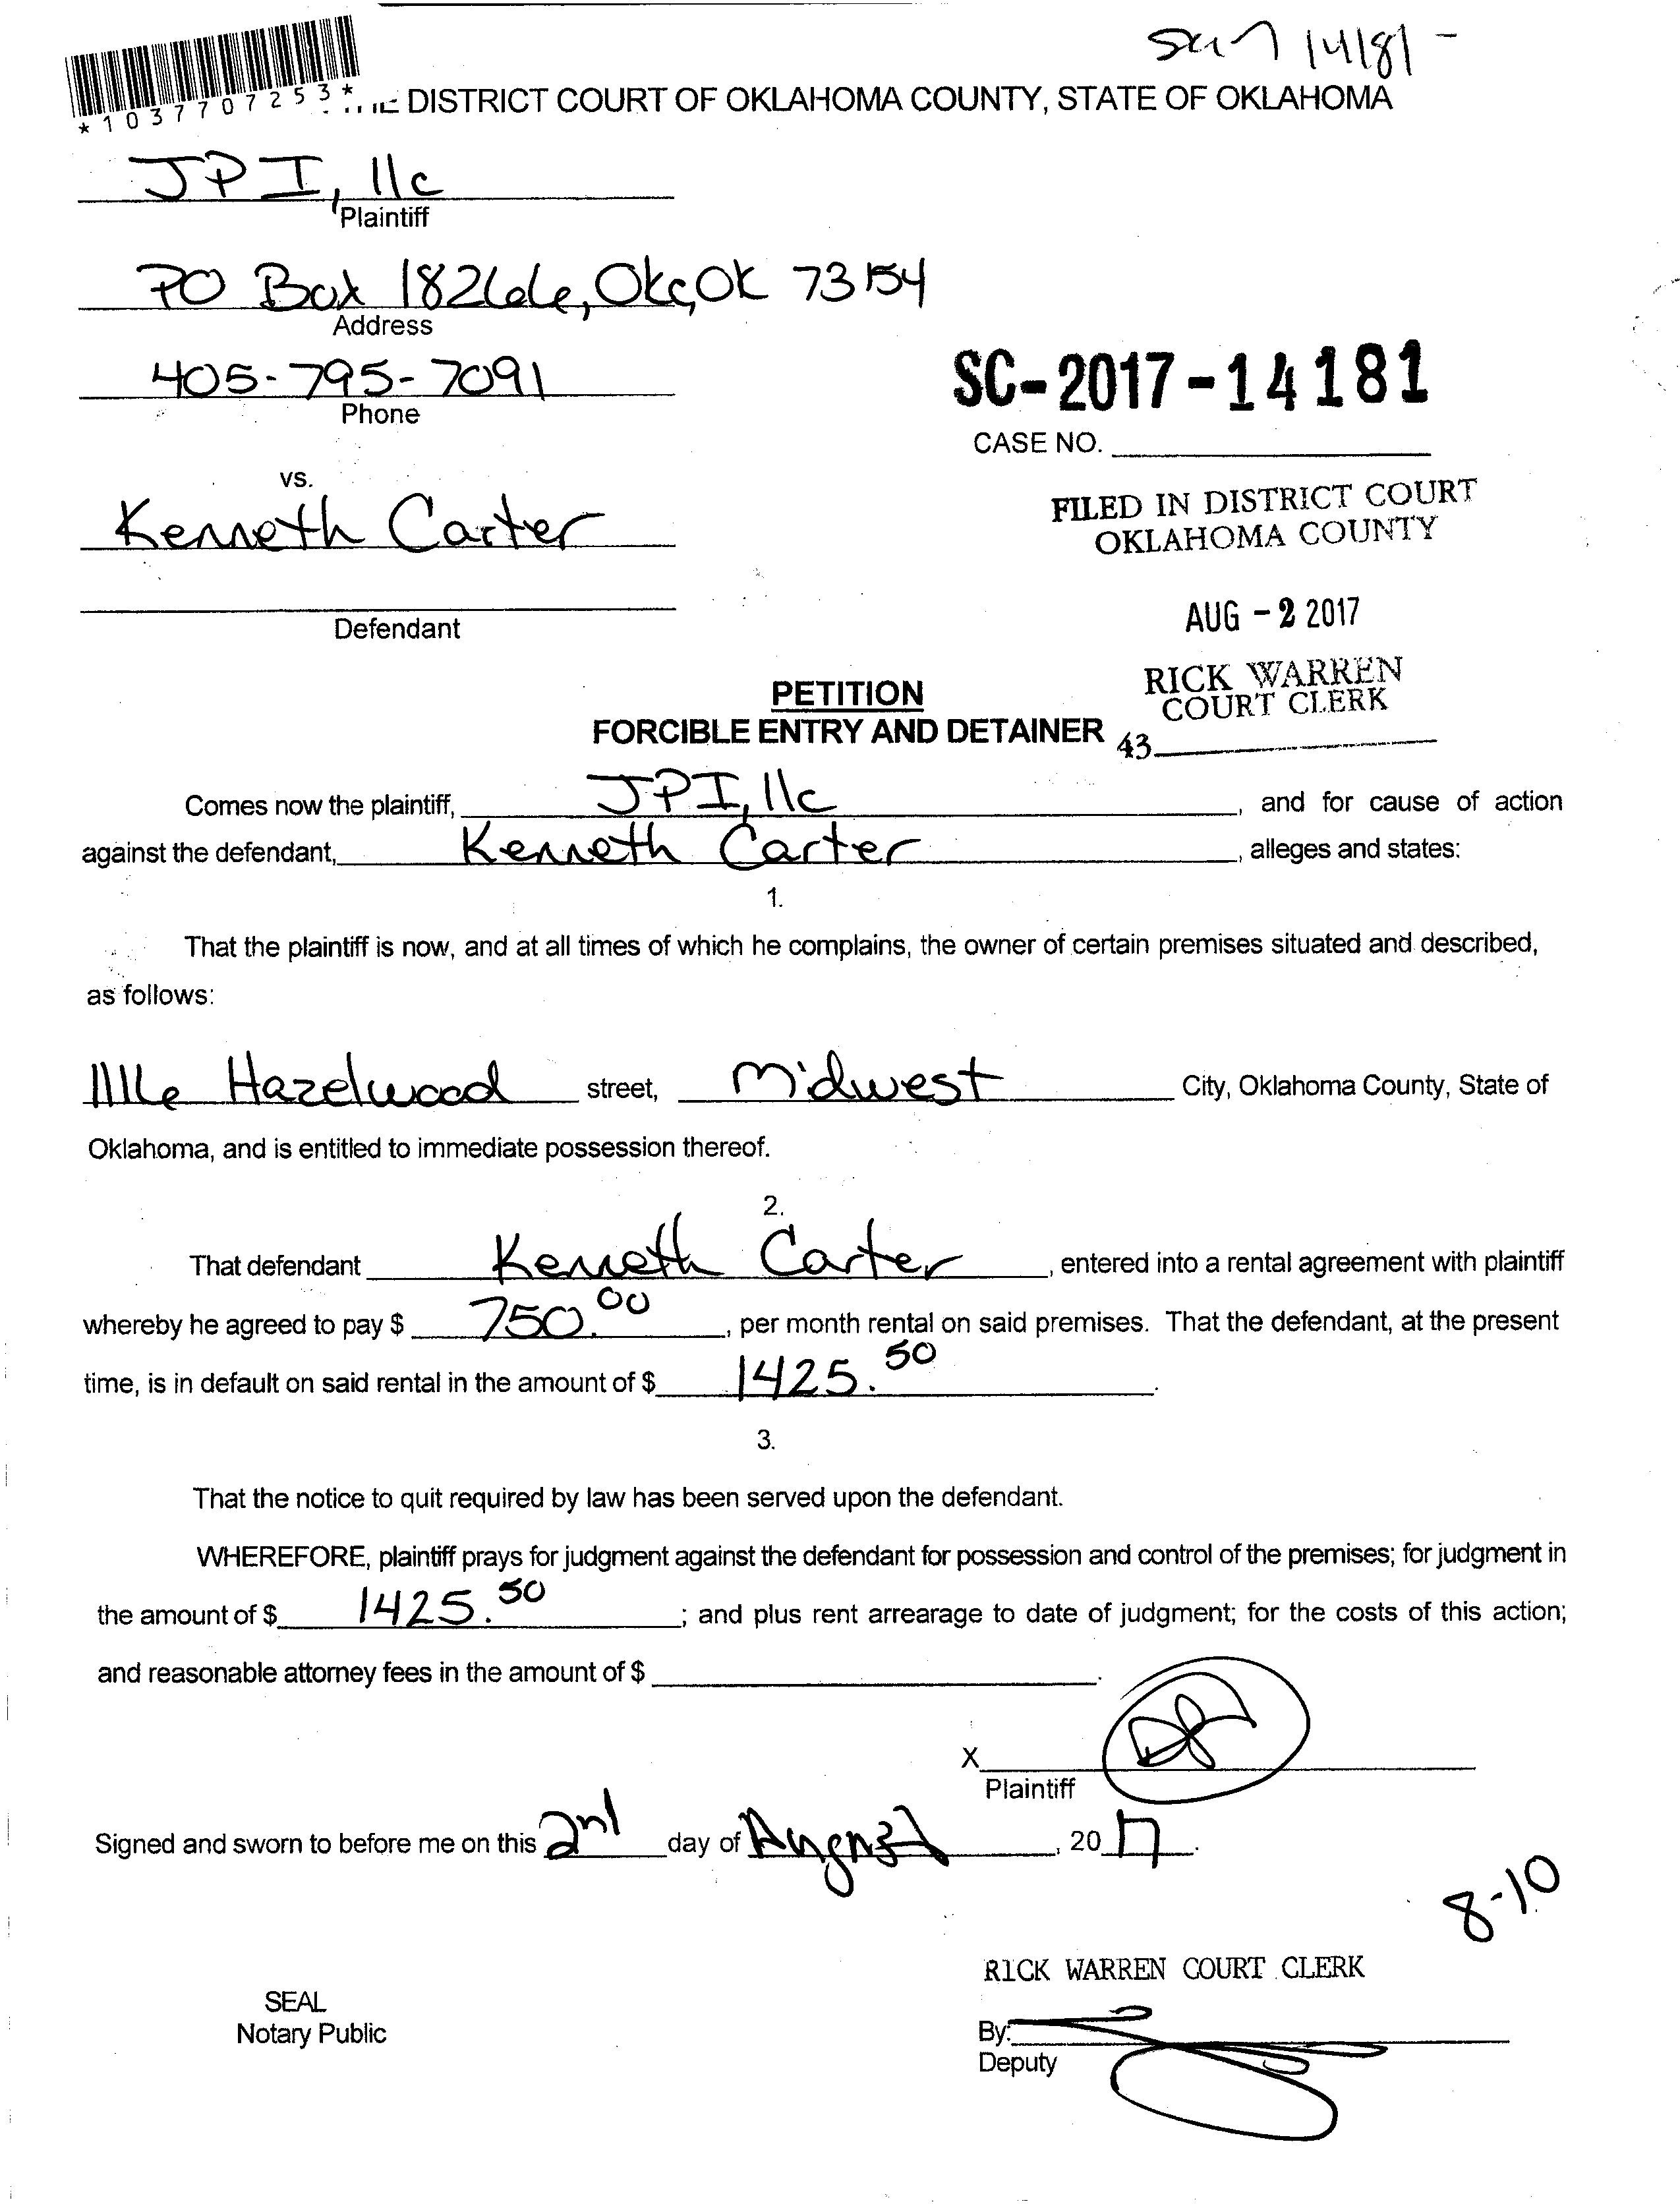 SC17 14181 -
*1037707253*
DISTRICT COURT OF OKLAHOMA COUNTY, STATE OF OKLAHOMA
JPI, llc
Plaintiff
PO Box 18266, Okc, OK 73154
Address
405-795-7091
Phone
SC-2017-14181
CASE NO.
vs.
Kenneth Carter
Defendant
FILED IN DISTRICT COURT
OKLAHOMA COUNTY
AUG - 2 2017
RICK WARREN
COURT CLERK
43
PETITION
FORCIBLE ENTRY AND DETAINER
Comes now the plaintiff, JPI, llc, and for cause of action
against the defendant, Kenneth Carter, alleges and states:
1.
That the plaintiff is now, and at all times of which he complains, the owner of certain premises situated and described,
as follows:
1116 Hazelwood street, Midwest City, Oklahoma County, State of
Oklahoma, and is entitled to immediate possession thereof.
2.
That defendant Kenneth Carter, entered into a rental agreement with plaintiff
whereby he agreed to pay $ 750.00, per month rental on said premises. That the defendant, at the present
time, is in default on said rental in the amount of $ 1425.50.
3.
That the notice to quit required by law has been served upon the defendant.
WHEREFORE, plaintiff prays for judgment against the defendant for possession and control of the premises; for judgment in
the amount of $ 1425.50; and plus rent arrearage to date of judgment; for the costs of this action;
and reasonable attorney fees in the amount of $ .
X
Plaintiff
Signed and sworn to before me on this 2nd day of August, 2017.
8-10
RICK WARREN COURT CLERK
SEAL
Notary Public
By:
Deputy